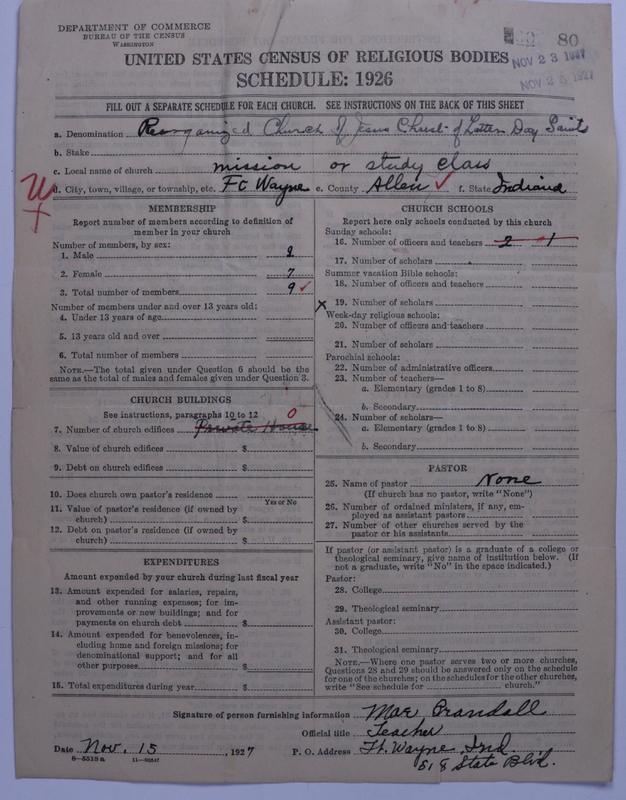 DEPARTMENT OF COMMERCE
BUREAU OF THE CENSUS
WASHINGTON
80
NOV 23 1927
NOV 25 1927
UNITED STATES CENSUS OF RELIGIOUS BODIES
SCHEDULE: 1926
FILL OUT A SEPARATE SCHEDULE FOR EACH CHURCH. SEE INSTRUCTIONS ON THE BACK OF THIS SHEET
a. Denomination Reorganized Church of Jesus Christ of Latter Day Saints
b. Stake
c. Local name of church mission or study class
d. City, town, village, or township, etc. Ft Wayne e. County Allen ✓ f. State Indiana
MEMBERSHIP
Report number of members according to definition of
member in your church
Number of members, by sex:
1. Male 2
2. Female 7
3. Total number of members 9 ✓
Number of members under and over 13 years old:
4. Under 13 years of age
5. 13 years old and over
6. Total number of members
NOTE.—The total given under Question 6 should be the
same as the total of males and females given under Question 3.
CHURCH BUILDINGS
See instructions, paragraphs 10 to 12
0
7. Number of church edifices Private House
8. Value of church edifices $
9. Debt on church edifices $
10. Does church own pastor's residence
Yes or No
11. Value of pastor's residence (if owned by
church) $
12. Debt on pastor's residence (if owned by
church) $
EXPENDITURES
Amount expended by your church during last fiscal year
13. Amount expended for salaries, repairs,
and other running expenses; for im-
provements or new buildings; and for
payments on church debt $
14. Amount expended for benevolences, in-
cluding home and foreign missions; for
denominational support; and for all
other purposes $
15. Total expenditures during year $
CHURCH SCHOOLS
Report here only schools conducted by this church
Sunday schools:
16. Number of officers and teachers 2 1
17. Number of scholars
Summer vacation Bible schools:
18. Number of officers and teachers
19. Number of scholars
X
Week-day religious schools:
20. Number of officers and teachers
21. Number of scholars
Parochial schools:
22. Number of administrative officers
23. Number of teachers—
a. Elementary (grades 1 to 8)
b. Secondary
24. Number of scholars—
a. Elementary (grades 1 to 8)
b. Secondary
PASTOR
25. Name of pastor None
(If church has no pastor, write "None")
26. Number of ordained ministers, if any, em-
ployed as assistant pastors
27. Number of other churches served by the
pastor or his assistants
If pastor (or assistant pastor) is a graduate of a college or
theological seminary, give name of institution below. (If
not a graduate, write "No" in the space indicated.)
Pastor:
28. College
29. Theological seminary
Assistant pastor:
30. College
31. Theological seminary
NOTE.—Where one pastor serves two or more churches,
Questions 28 and 29 should be answered only on the schedule
for one of the churches; on the schedules for the other churches,
write "See schedule for church."
Signature of person furnishing information Mae Crandall
Official title Teacher
Date Nov. 15, 1927 P. O. Address Ft. Wayne, Ind.
518 State Blvd.
8—5518 a